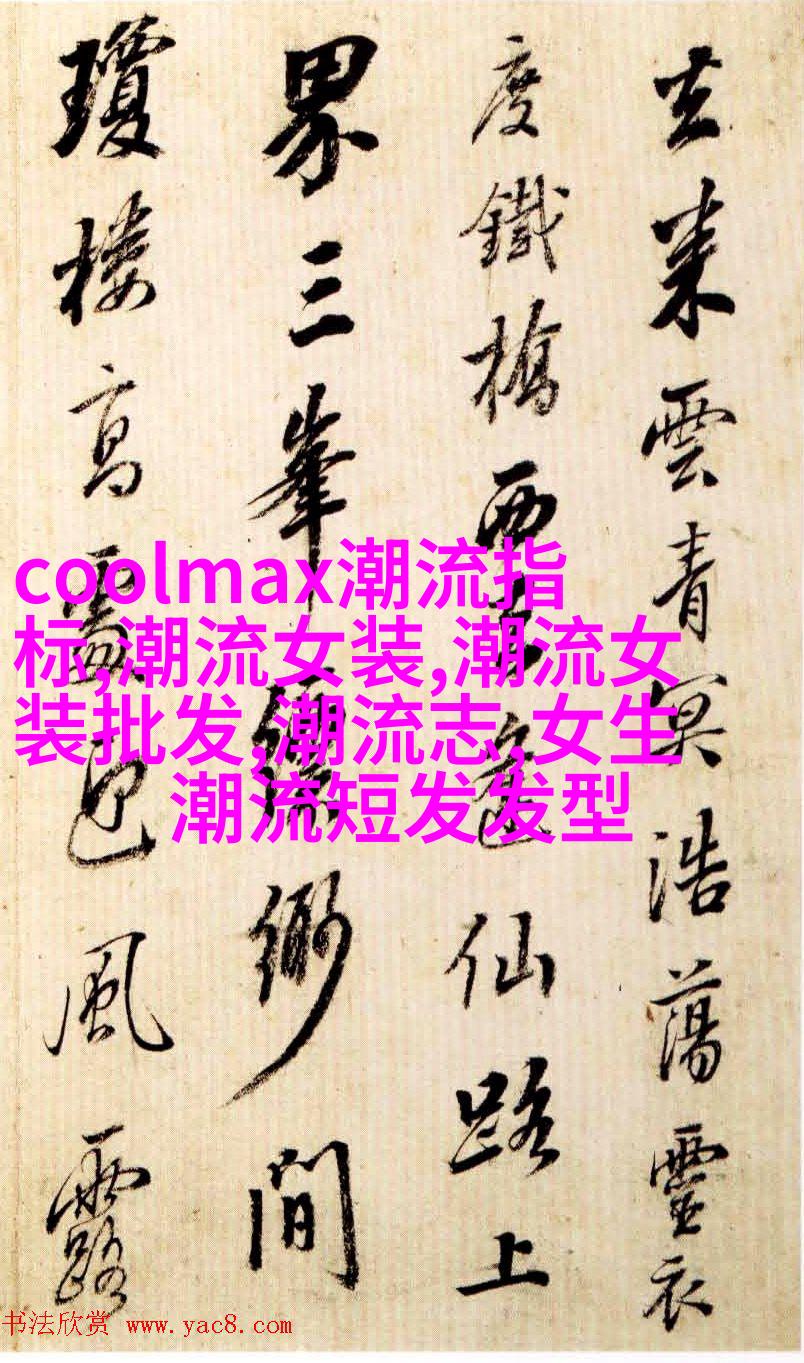 去来雲青冥浩蕩靈衣
度鐵橋西仙路上
界三峯縹緲間
瓊樓高風露
coolmax潮流指
标,潮流女装,潮流女
装批发,潮流志,女生
潮流短发发型
书法欣赏 www.yac8.com